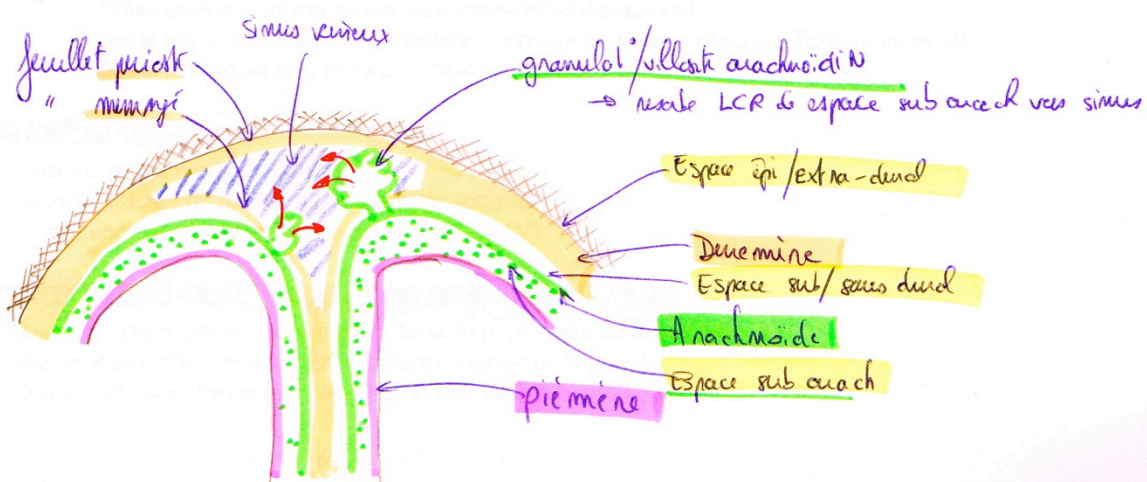 sinus veineux
feuillet périost
" méningé
granulat°/villosité arachnoïdiN
→ résorbe LCR de espace sub arach vers sinus
Espace épi/extra-dural
Duremère
Espace sub/sous dural
Arachnoïde
Espace sub arach
piémère